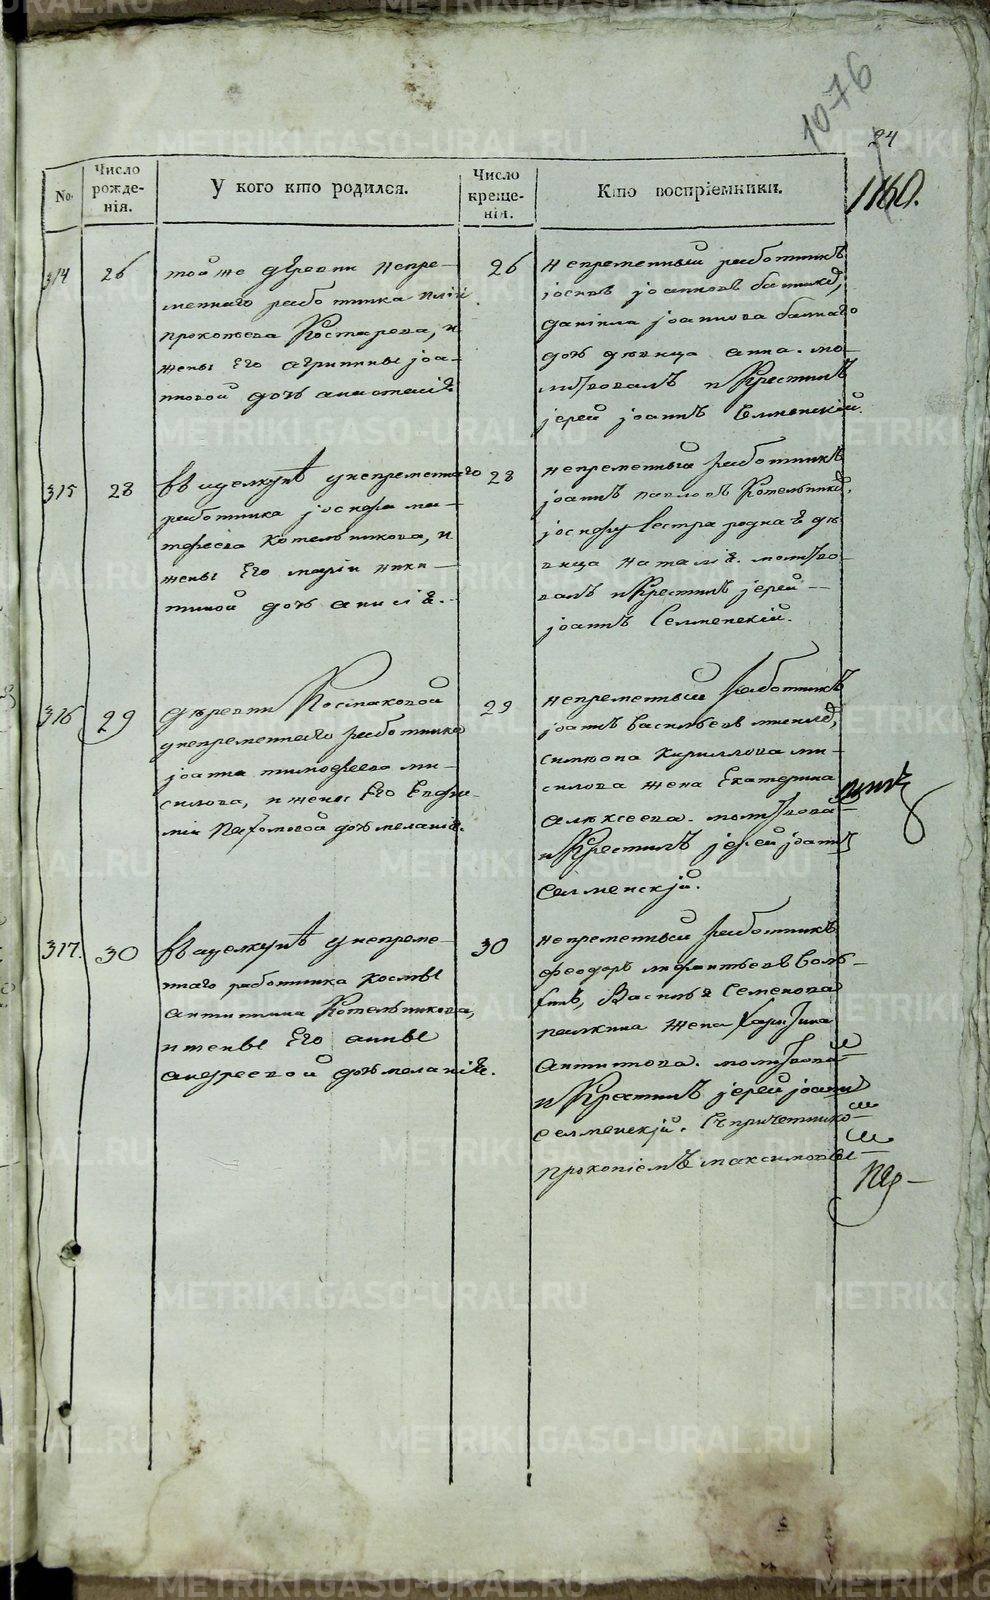 1076
24
1160.
No.
Число рожде-
нія.
У кого кто родился.
Число креще-
нія.
Кто воспріемники.
314
26
той же деревни непре-
меннаго работника Иліи
прокопьева Костарева, и
жены Его агрипины јоа-
нновой дочь анастасіѣ
26
непременный работникъ
јосивъ јоанновъ
даніила јоаннова
дочь девица анна. мо-
литвовалъ и Крестилъ
јерей јоаннъ Селменскій.
315
28
въ щелкунѣ у непременнаго
работника јосифа ма-
тфеева Котельникова, и
жены Его маріи ники-
тиной дочь анисіѣ.
28
непременный работникъ
јоаннъ павловъ Котельниковъ,
јосифу Сестра родная дѣ-
вица наталіѣ. молитво-
валъ и Крестилъ јерей
јоаннъ Селменскій.
316
29
деревни Костаковой
у непременнаго работника
јоанна тимофеева ми-
силова, и жены Его Евфи-
міи Пахомовой дочь меланіѣ.
29
непременный работникъ
јоаннъ васильевъ
симеона Кириллова ми-
силова жена Екатерина
алексеева. молитвова
и Крестилъ јерей јоаннъ
Селменскјй.
317.
30
въ щелкунѣ у непреме-
ннаго работника космы
антипина Котельникова,
и жены Его анны
андреевой дочь меланіѣ.
30
непременный работникъ
феодоръ
Василья Семенова
палкина жена
антипова. молитвова
и Крестилъ јерей јоаннъ
Селменскјй. Съ причетнико
прокопіемъ максимовы